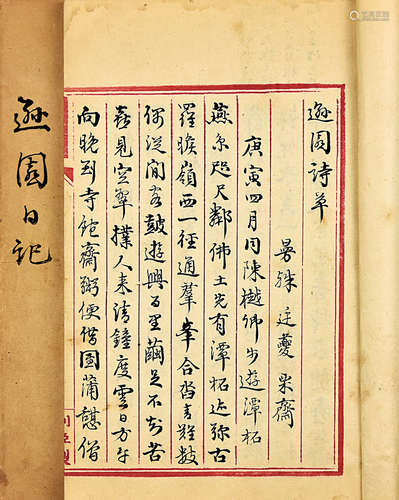 遜園日記
遜園詩草
曼殊 廷夔 宋齋
庚寅四月同陳樾卿步遊潭柘
燕京咫尺鄰佛土先有潭柘近弥古
羅睺嶺西一徑通羣峯合沓青難數
偶從閒客鼓遊興百里繭足不知苦
喜見空翠撲人来清鐘度雲日方午
向晚到寺飽齋粥便借團蒲憩僧